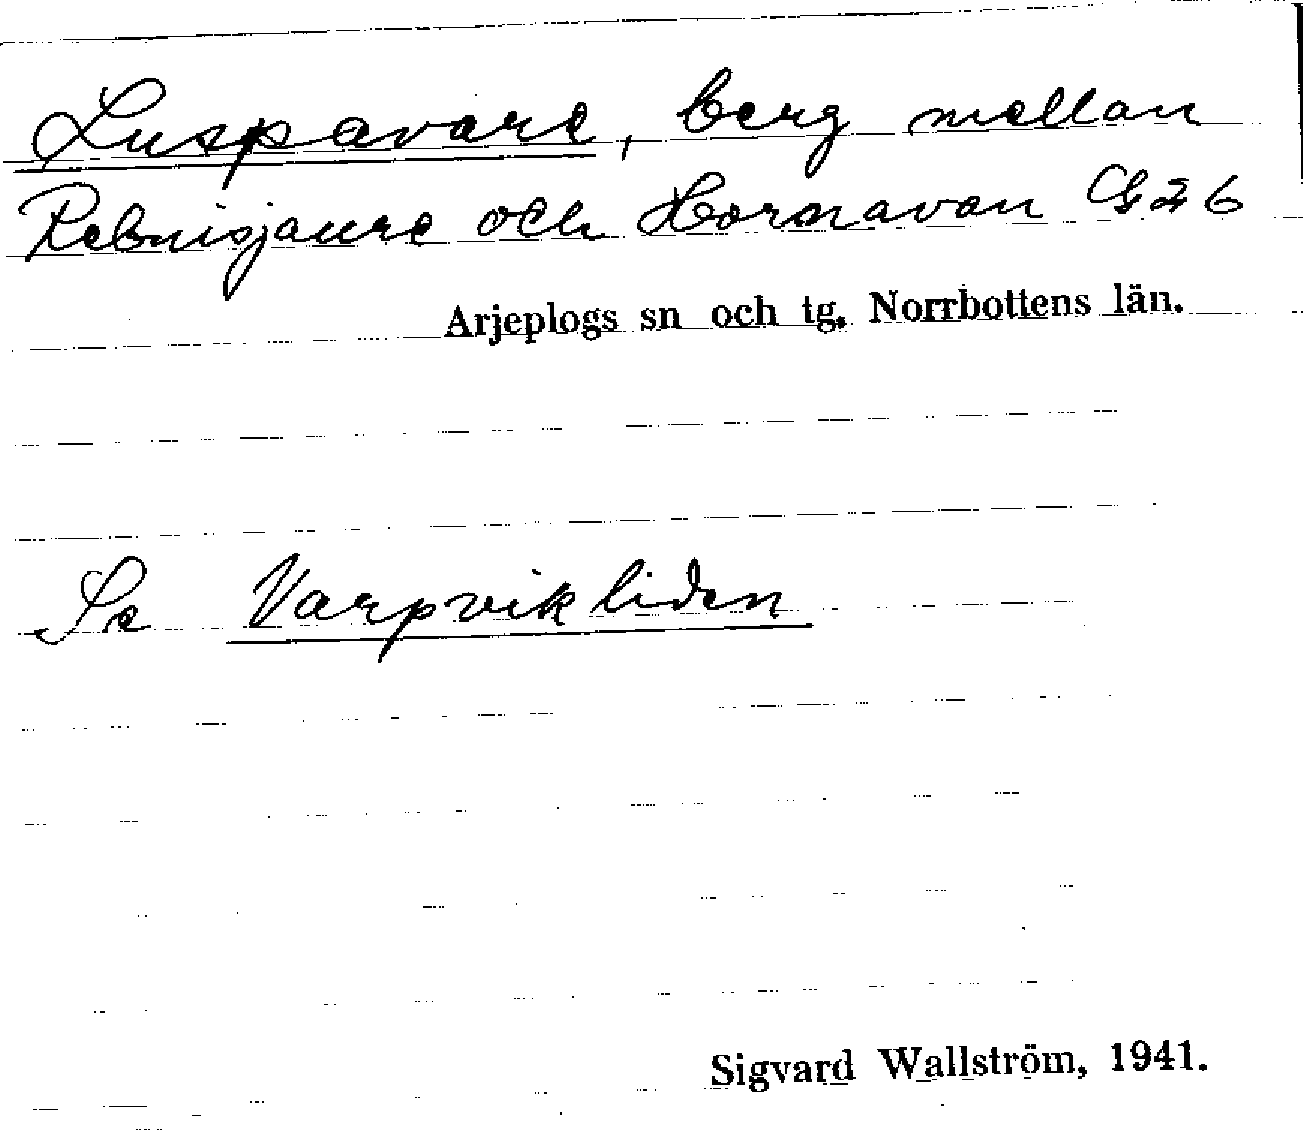 Luspavare, berg mellan
Rebnisjaure och Hornavan G26
Arjeplogs sn och tg. Norrbottens län.
Se Varpvikliden
Sigvard Wallström, 1941.